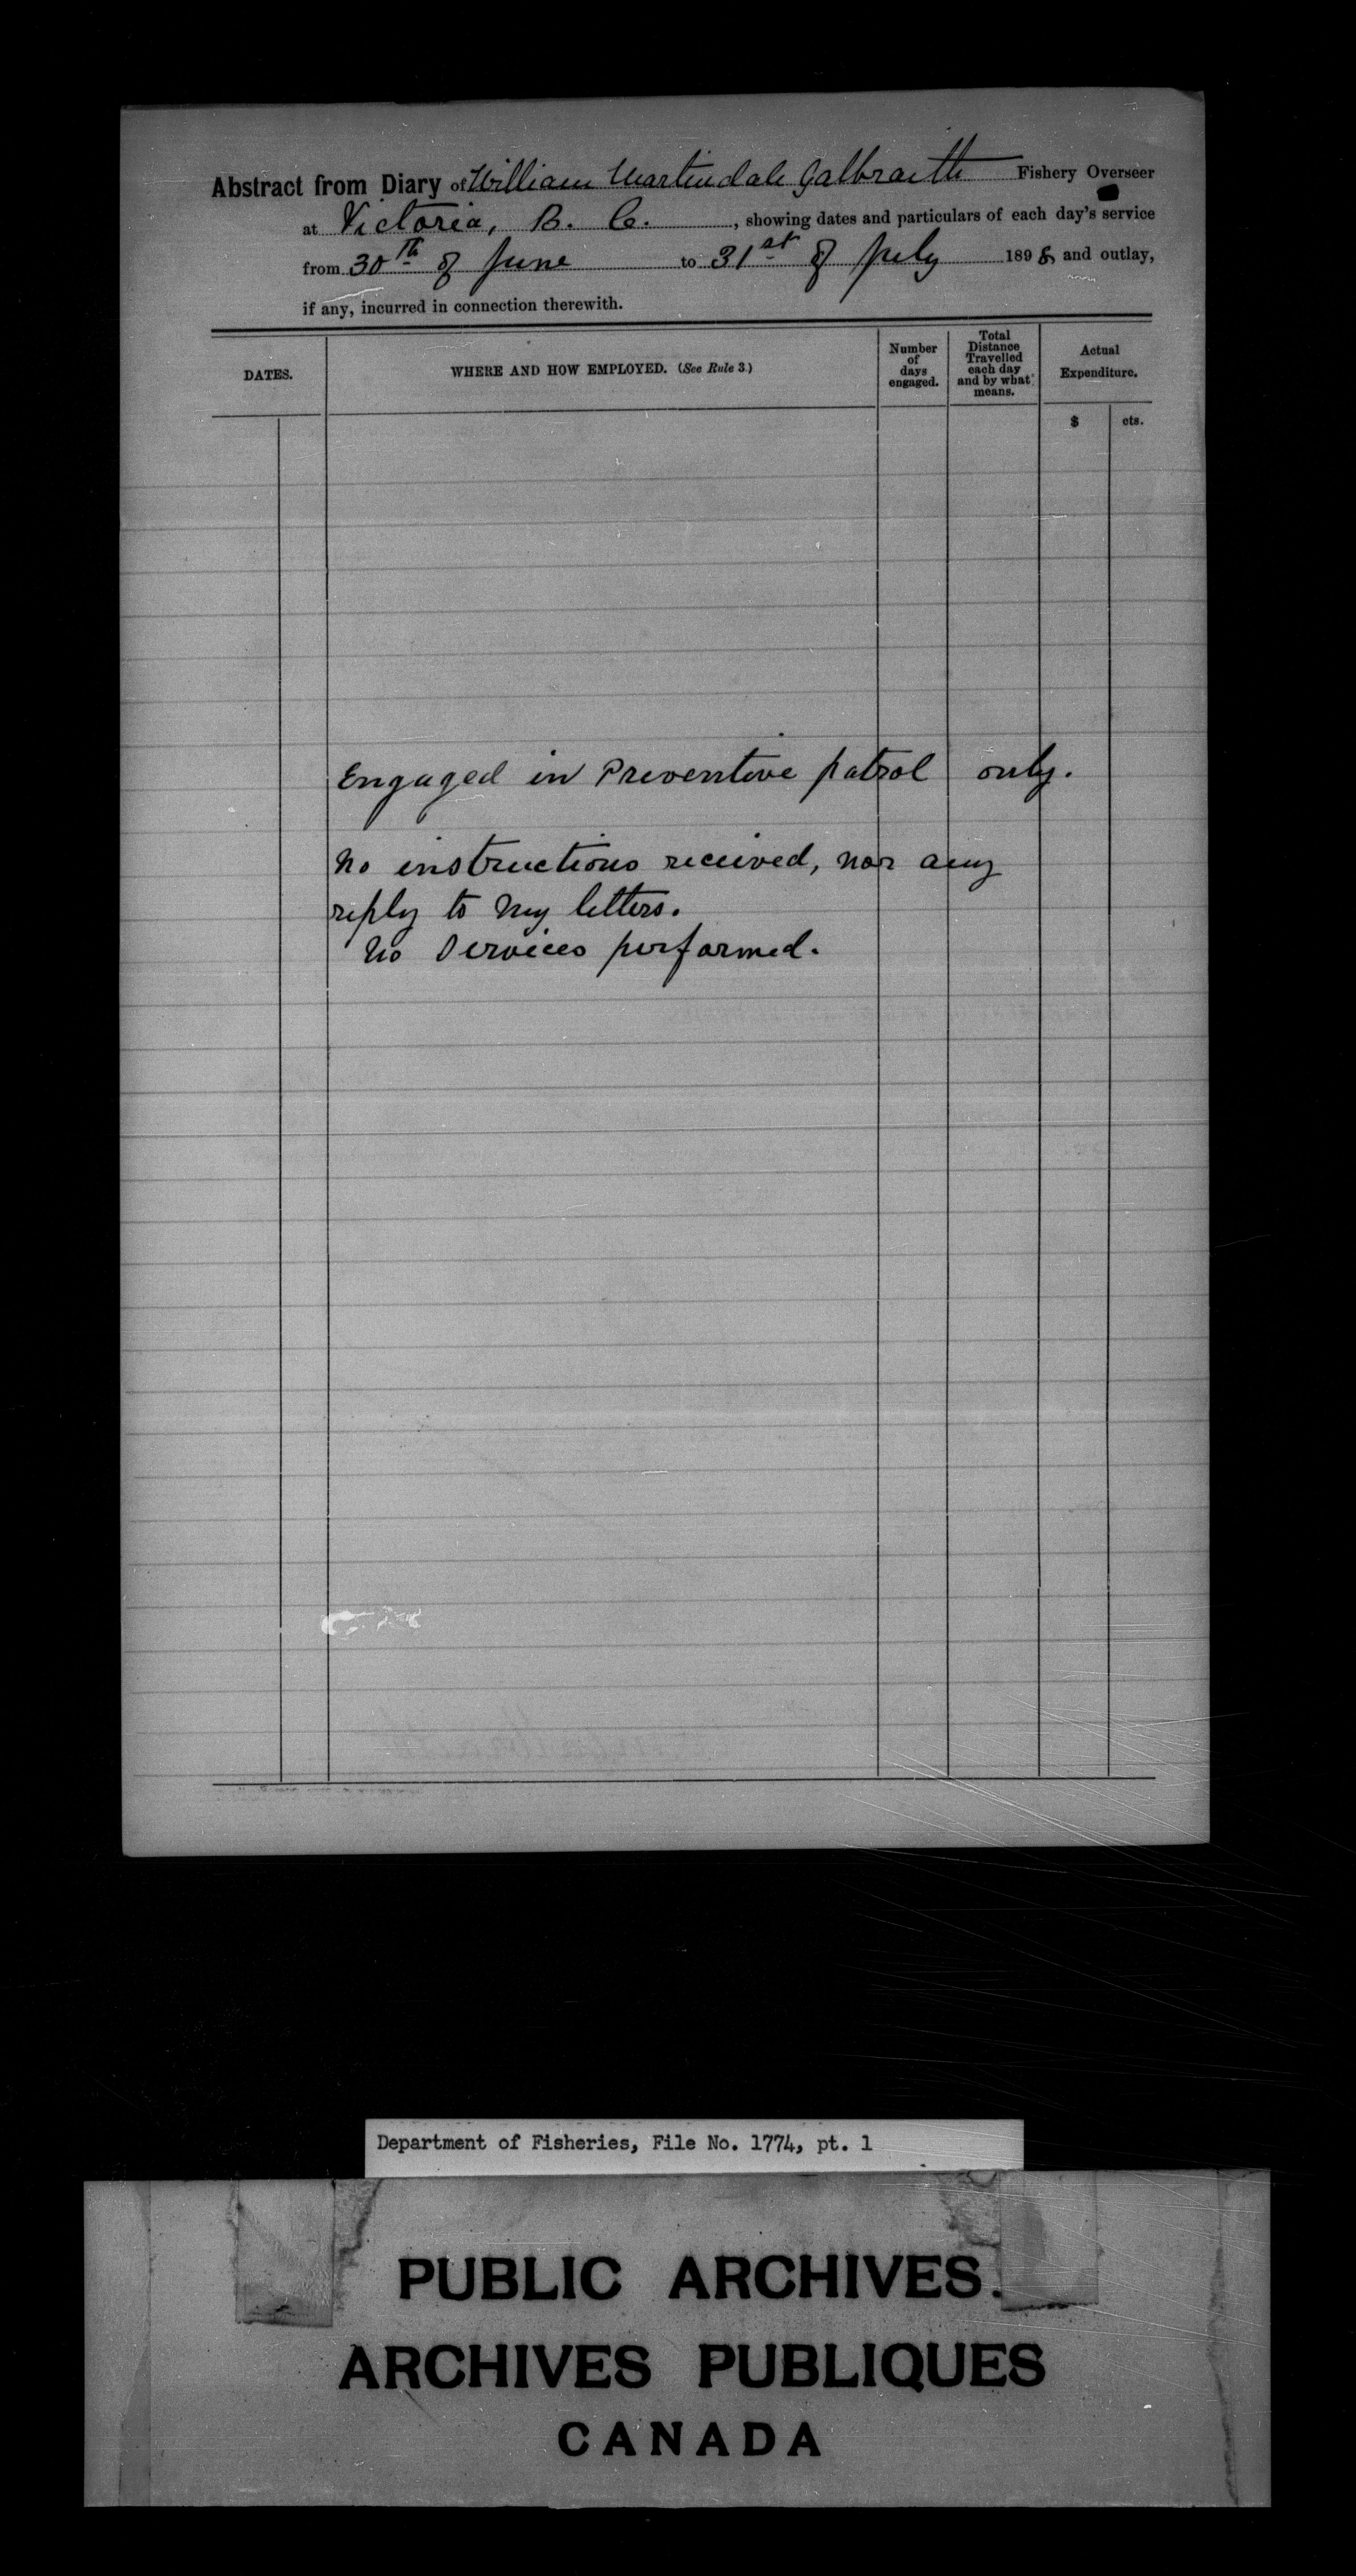 Abstract from Diary of William Martindale Galbraith Fishery Overseer
at Victoria, B. C. , showing dates and particulars of each day's service
from 30th of June to 31st of July 1898 and outlay,
if any, incurred in connection therewith.
DATES.
WHERE AND HOW EMPLOYED. (See Rule 3.)
Number
of
days
engaged.
Total
Distance
Travelled
each day
and by what
means.
Actual
Expenditure.
$ cts.
Engaged in Preventive patrol only.
No instructions received, nor any
reply to my letters.
No Services performed.
Department of Fisheries, File No. 1774, pt. 1
PUBLIC ARCHIVES.
ARCHIVES PUBLIQUES
CANADA